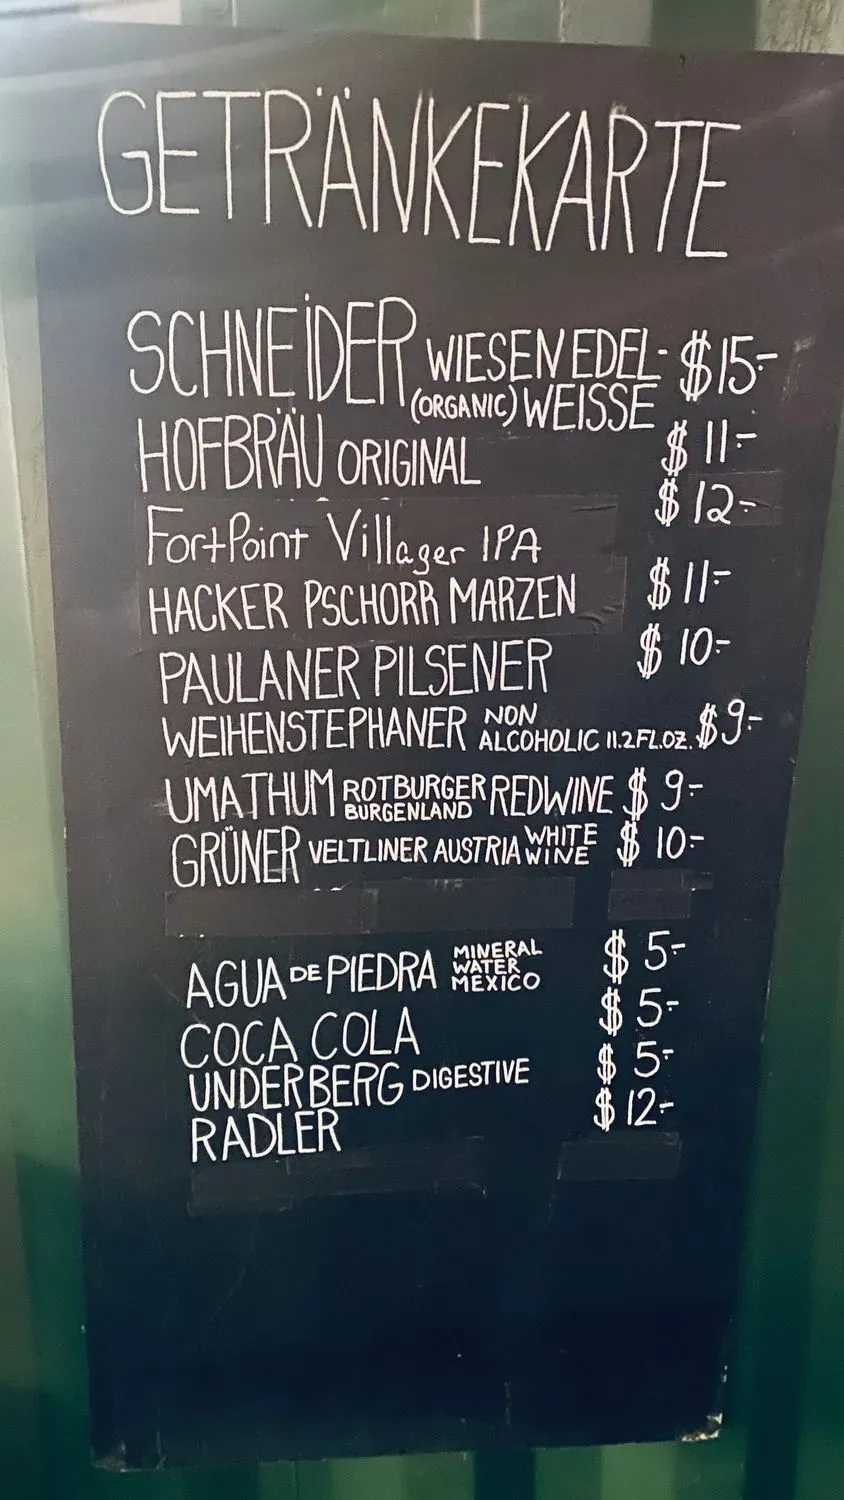 GETRÄNKEKARTE
SCHNEIDER WIESEN EDEL- $15-
(ORGANIC) WEISSE
HOFBRÄU ORIGINAL $ 11-
FortPoint Villager IPA $ 12-
HACKER PSCHORR MARZEN $ 11-
PAULANER PILSENER $ 10-
WEIHENSTEPHANER NON ALCOHOLIC 11.2FL.OZ. $9-
UMATHUM ROTBURGER BURGENLAND REDWINE $ 9-
GRÜNER VELTLINER AUSTRIA WHITE WINE $ 10-
AGUA DE PIEDRA MINERAL WATER MEXICO $ 5-
COCA COLA $ 5-
UNDERBERG DIGESTIVE $ 5-
RADLER $ 12-